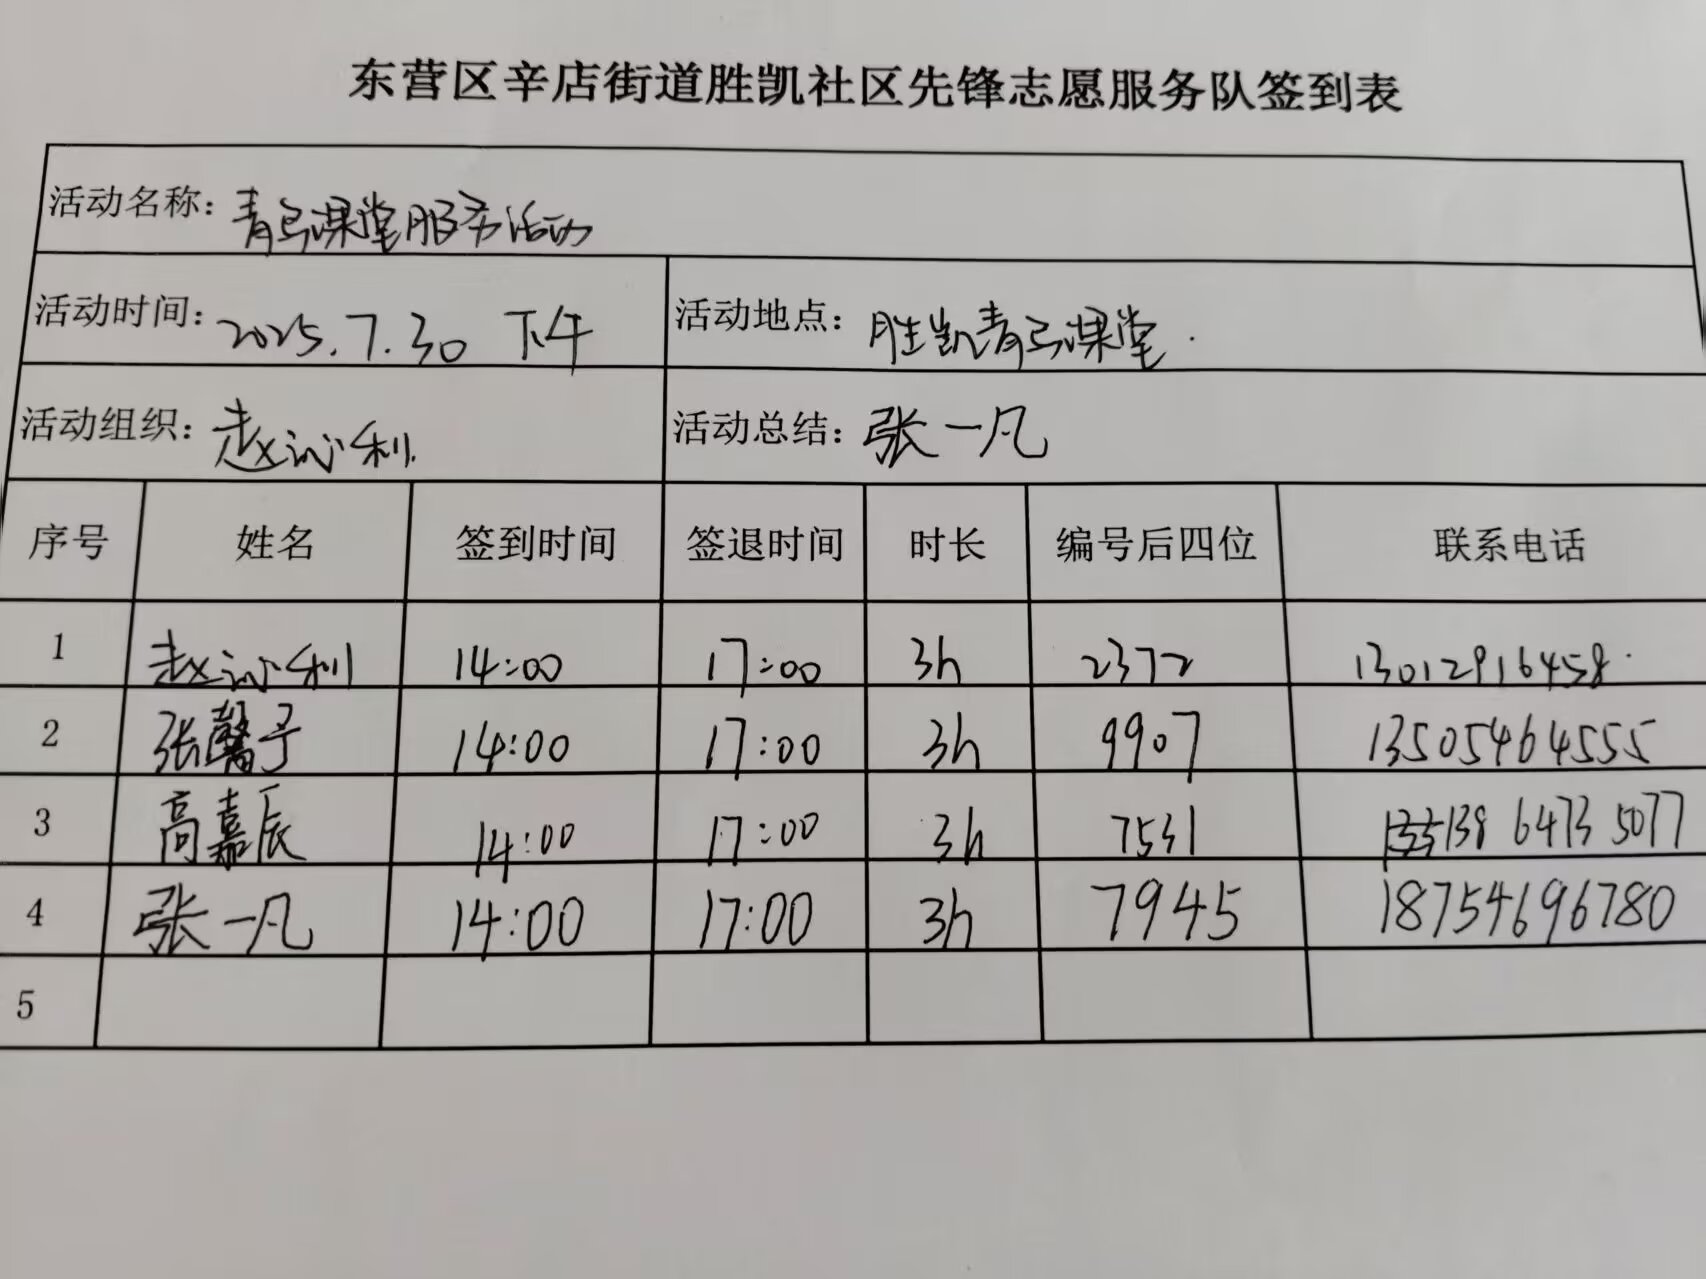 东营区辛店街道胜凯社区先锋志愿服务队签到表
活动名称：青鸟课堂服务活动
活动时间：2025.7.30 下午 活动地点：胜凯青鸟课堂.
活动组织：赵沁利 活动总结：张一凡
序号 姓名 签到时间 签退时间 时长 编号后四位 联系电话
1 赵沁利 14:00 17:00 3h 2372 13012916458
2 张馨予 14:00 17:00 3h 9907 13505464555
3 高嘉辰 14:00 17:00 3h 7531 138 6473 5077
4 张一凡 14:00 17:00 3h 7945 18754696780
5